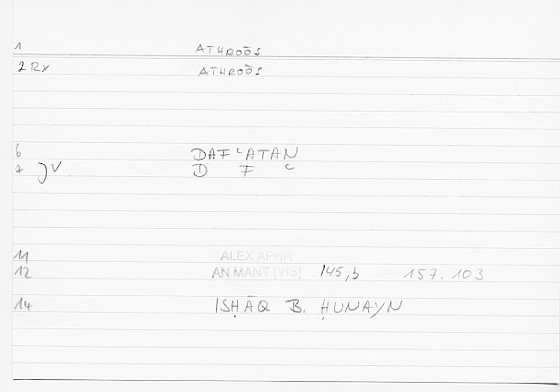 1 ATHROŌS
2 Rx ATHROŌS
6 DAFʿATAN
7 jv D F ʿ
11 ALEX APHR
12 AN MANT [VIS] 145,5 157.103
14 ISḤĀQ B. ḤUNAYN